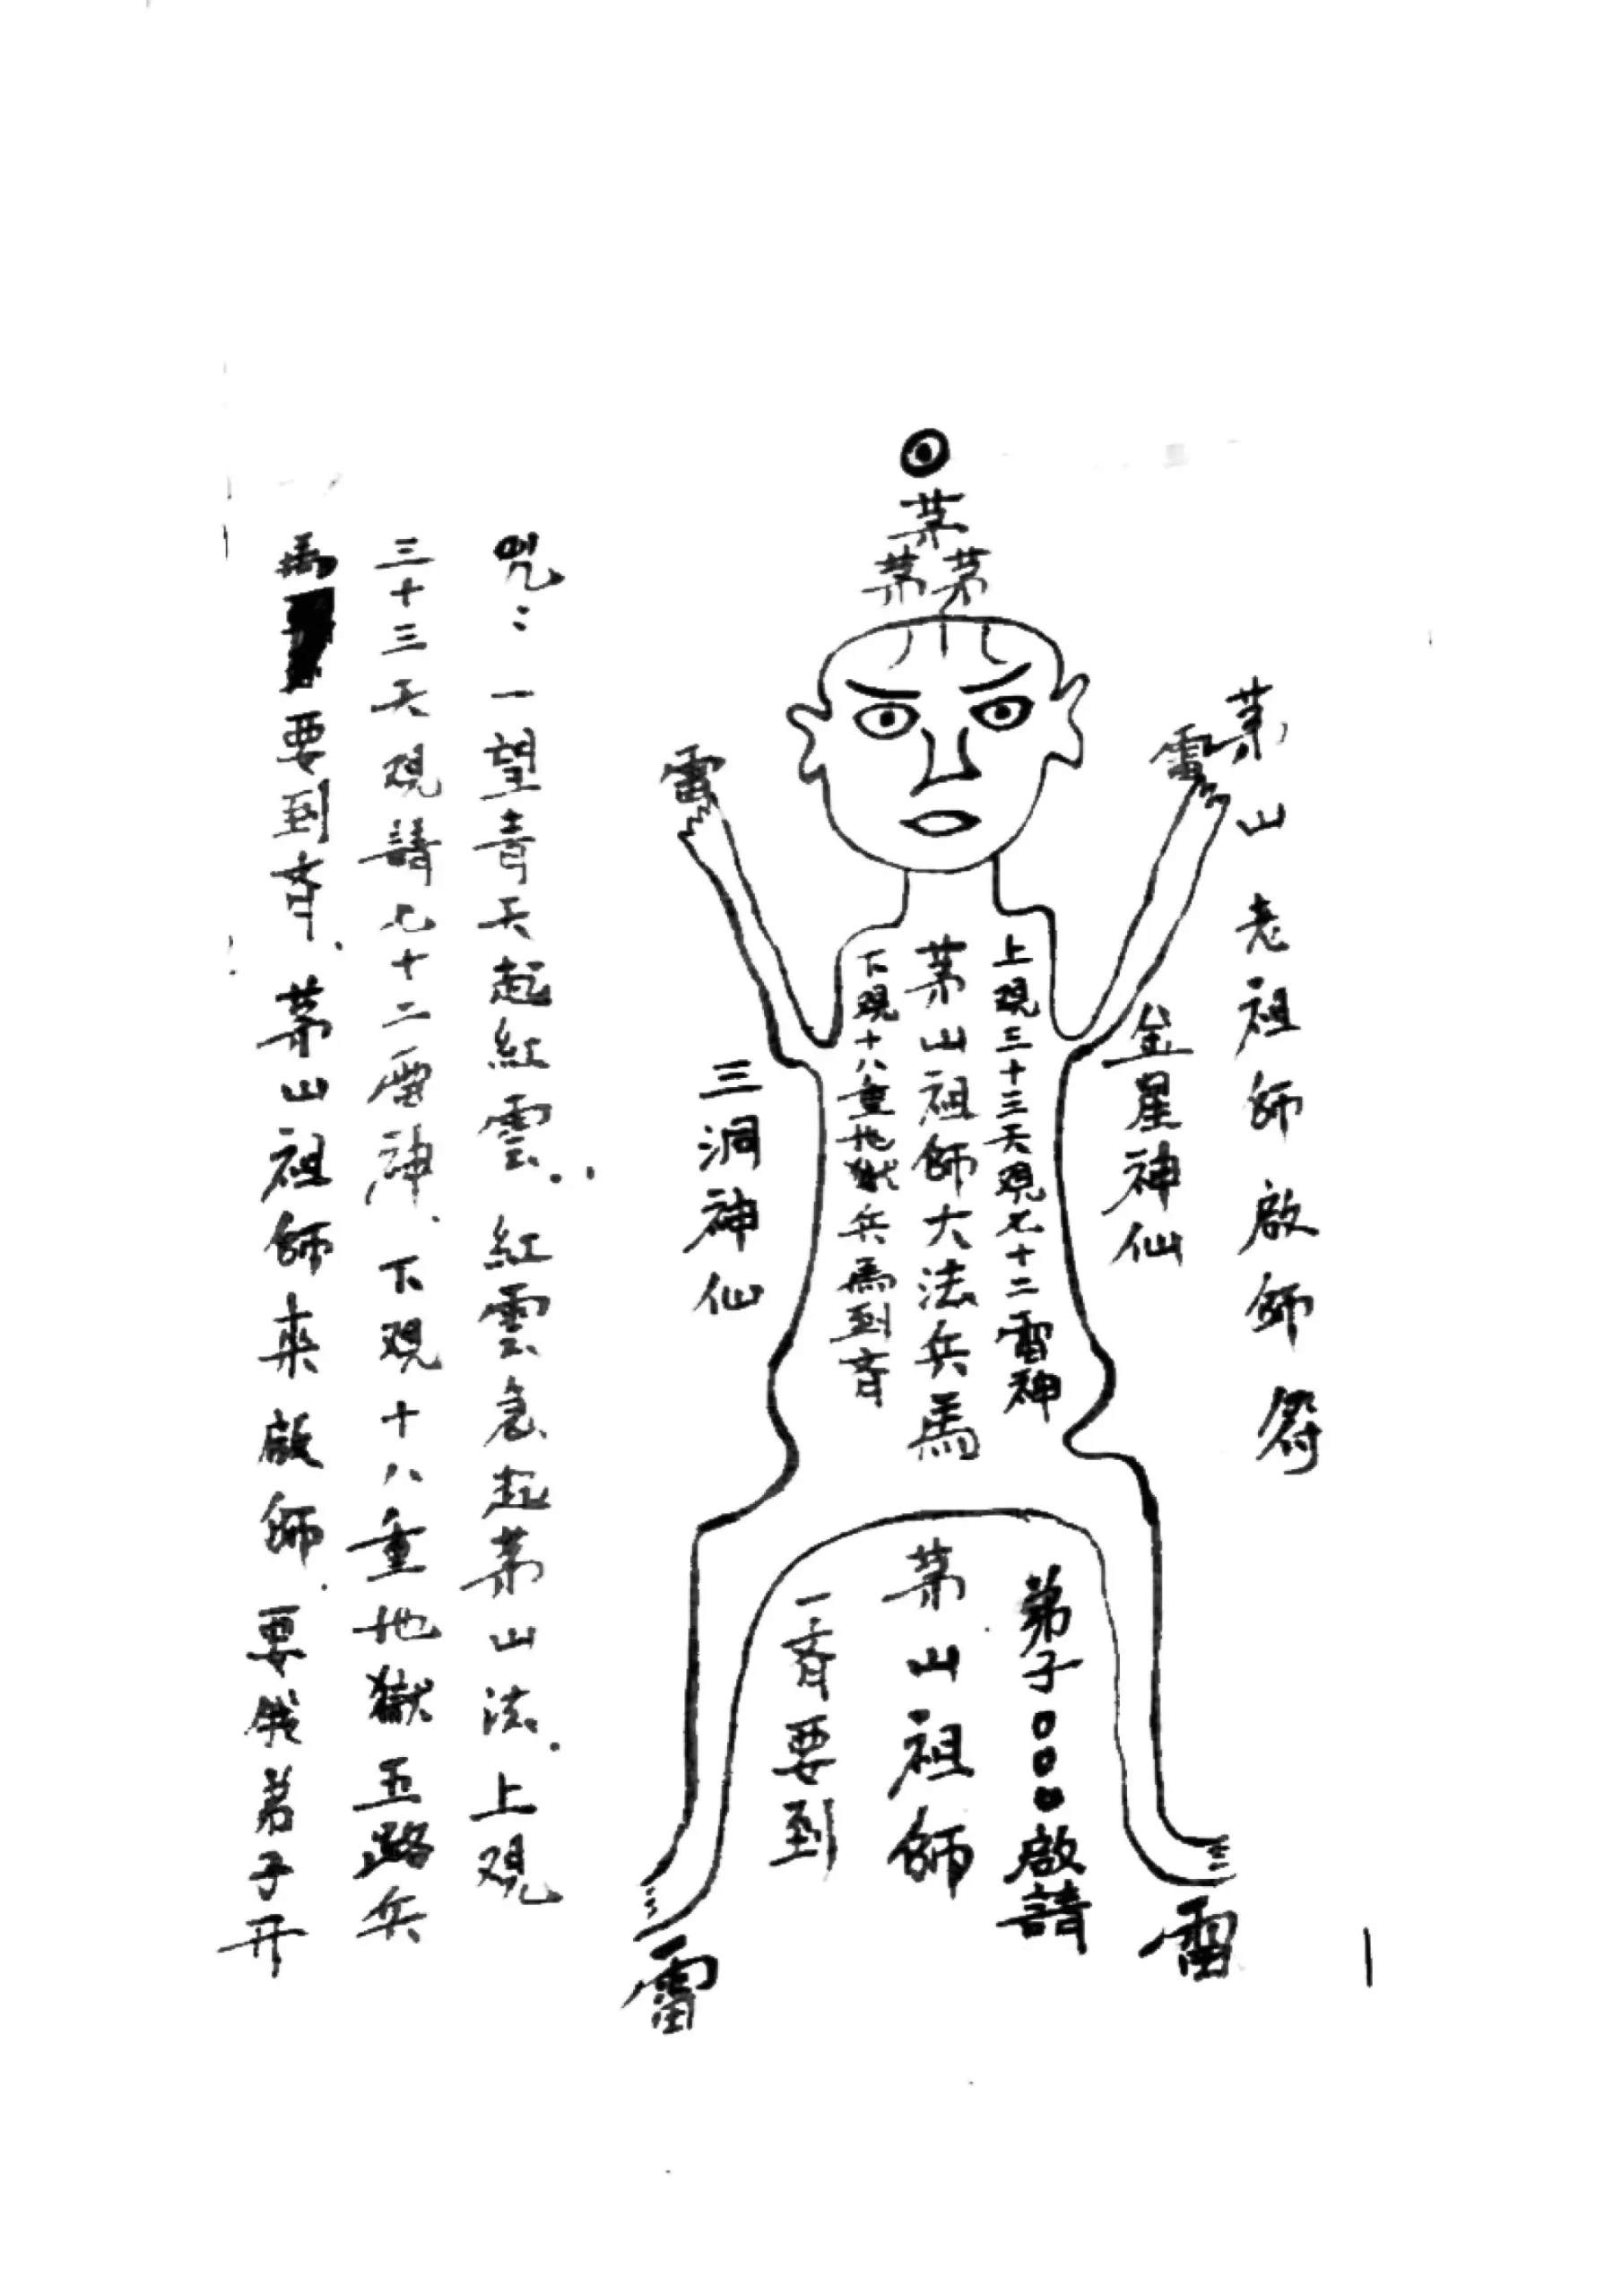 茅山老祖師啟師符
茅
茅茅
雷
雷
金星神仙
三洞神仙
上观三十三天观七十二雷神
茅山祖師大法兵馬
下观十八重地獄兵馬到斉
弟子000啟請
茅山祖師
一斉要到
雷
雷
咒：一望青天起紅雲.. 紅雲急起茅山法.上观
三十三天观請七十二雷神.下观十八重地獄五路兵
馬要到斉.茅山祖師來啟師.要俄弟子开